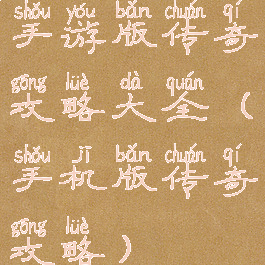 shǒu yóu bǎn chuán qí
手游版传奇
gōng lüè dà quán
攻略大全(
shǒu jī bǎn chuán qí
手机版传奇
gōng lüè
攻略)